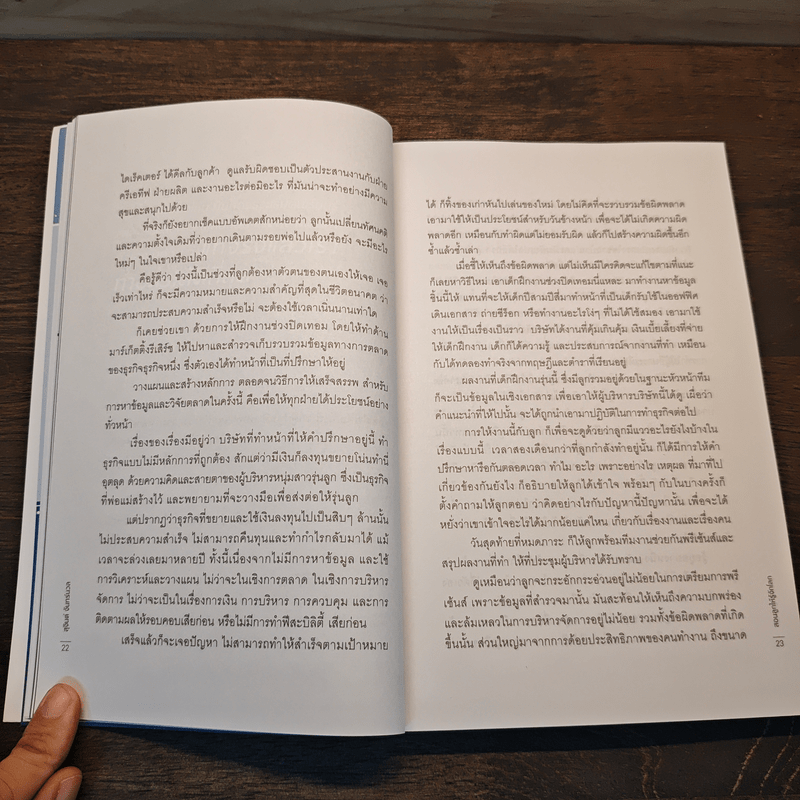 ไดเร็คเตอร์ ได้ดีลกับลูกค้า ดูแลรับผิดชอบเป็นตัวประสานงานกับฝ่าย
ครีเอทีฟ ฝ่ายผลิต และงานอะไรต่อมิอะไร ที่มันน่าจะทำอย่างมีความ
สุขและสนุกไปด้วย
ที่จริงก็ยังอยากเช็คแบบอัพเดตสักหน่อยว่า ลูกนั้นเปลี่ยนทัศนคติ
และความตั้งใจเดิมที่ว่าอยากเดินตามรอยพ่อไปแล้วหรือยัง จะมีอะไร
ใหม่ๆ ในใจเขาหรือเปล่า
คือรู้ดีว่า ช่วงนี้เป็นช่วงที่ลูกต้องหาตัวตนของตนเองให้เจอ เจอ
เร็วเท่าไหร่ ก็จะมีความหมายและความสำคัญที่สุดในชีวิตอนาคต ว่าจะ
สามารถประสบความสำเร็จหรือไม่ จะต้องใช้เวลาเนิ่นนานเท่าใด
ก็เคยช่วยเขา ด้วยการให้ฝึกงานช่วงปิดเทอม โดยให้ทำด้าน
มาร์เก็ตติ้งรีเสิร์ซ ให้ไปหาและสำรวจเก็บรวบรวมข้อมูลทางการตลาด
ของธุรกิจธุรกิจหนึ่ง ซึ่งตัวเองได้ทำหน้าที่เป็นที่ปรึกษาให้อยู่
วางแผนและสร้างหลักการ ตลอดจนวิธีการให้เสร็จสรรพ สำหรับ
การหาข้อมูลและวิจัยตลาดในครั้งนี้ คือเพื่อให้ทุกฝ่ายได้ประโยชน์อย่าง
ทั่วหน้า
เรื่องของเรื่องมีอยู่ว่า บริษัทที่ทำหน้าที่ให้คำปรึกษาอยู่นี้ ทำ
ธุรกิจแบบไม่มีหลักการที่ถูกต้อง สักแต่ว่ามีเงินก็ลงทุนขยายโน่นทำนี่
อุตลุด ด้วยความคิดและสายตาของผู้บริหารหนุ่มสาวรุ่นลูก ซึ่งเป็นธุรกิจ
ที่พ่อแม่สร้างไว้ และพยายามที่จะวางมือเพื่อส่งต่อให้รุ่นลูก
แต่ปรากฏว่าธุรกิจที่ขยายและใช้เงินลงทุนไปเป็นสิบๆ ล้านนั้น
ไม่ประสบความสำเร็จ ไม่สามารถคืนทุนและทำกำไรกลับมาได้ แม้
เวลาจะล่วงเลยมาหลายปี ทั้งนี้เนื่องจากไม่มีการหาข้อมูล และใช้
การวิเคราะห์และวางแผน ไม่ว่าจะในเชิงการตลาด ในเชิงการบริหาร
จัดการ ไม่ว่าจะเป็นในเรื่องการเงิน การบริหาร การควบคุม และการ
ติดตามผลให้รอบคอบเสียก่อน หรือไม่มีการทำฟีสะบิลิตี้ เสียก่อน
เสร็จแล้วก็จะเจอปัญหา ไม่สามารถทำให้สำเร็จตามเป้าหมาย
สุจินต์ จันทร์นวล
22
ได้ ก็ทิ้งของเก่าหันไปเล่นของใหม่ โดยไม่คิดที่จะรวบรวมข้อผิดพลาด
เอามาใช้ให้เป็นประโยชน์สำหรับวันข้างหน้า เพื่อจะได้ไม่เกิดความผิด
พลาดอีก เหมือนกับทำผิดแต่ไม่ยอมรับผิด แล้วก็ไปสร้างความผิดขึ้นอีก
ซ้ำแล้วซ้ำเล่า
เมื่อชี้ให้เห็นถึงข้อผิดพลาด แต่ไม่เห็นมีใครคิดจะแก้ไขตามที่แนะ
ก็เลยหาวิธีใหม่ เอาเด็กฝึกงานช่วงปิดเทอมนี่แหละ มาทำงานหาข้อมูล
ชิ้นนี้ให้ แทนที่จะให้เด็กปีสามปีสี่มาทำหน้าที่เป็นเด็กรับใช้ในออฟฟิศ
เดินเอกสาร ถ่ายซีร็อก หรือทำงานอะไรโง่ๆ ที่ไม่ได้ใช้สมอง เอามาใช้
งานให้เป็นเรื่องเป็นราว บริษัทได้งานที่คุ้มเกินคุ้ม เงินเบี้ยเลี้ยงที่จ่าย
ให้เด็กฝึกงาน เด็กก็ได้ความรู้ และประสบการณ์จากงานที่ทำ เหมือน
กับได้ทดลองทำจริงจากทฤษฎีและตำราที่เรียนอยู่
ผลงานที่เด็กฝึกงานรุ่นนี้ ซึ่งมีลูกรวมอยู่ด้วยในฐานะหัวหน้าทีม
ก็จะเป็นข้อมูลในเชิงเอกสาร เพื่อเอาให้ผู้บริหารบริษัทนี้ได้ดู เผื่อว่า
คำแนะนำที่ให้ไปนั้น จะได้ถูกนำเอามาปฏิบัติในการทำธุรกิจต่อไป
การให้งานนี้กับลูก ก็เพื่อจะดูด้วยว่าลูกมีแววอะไรยังไงบ้างใน
เรื่องแบบนี้ เวลาสองเดือนกว่าที่ลูกกำลังทำอยู่นั้น ก็ได้มีการให้คำ
ปรึกษาหารือกันตลอดเวลา ทำไม อะไร เพราะอย่างไร เหตุผล ที่มาที่ไป
เกี่ยวข้องกันยังไง ก็อธิบายให้ลูกได้เข้าใจ พร้อมๆ กับในบางครั้งก็
ตั้งคำถามให้ลูกตอบ ว่าคิดอย่างไรกับปัญหานี้ปัญหานั้น เพื่อจะได้
หยั่งว่าเขาเข้าใจอะไรได้มากน้อยแค่ไหน เกี่ยวกับเรื่องงานและเรื่องคน
วันสุดท้ายที่หมดภาระ ก็ให้ลูกพร้อมทีมงานช่วยกันพรีเซ้นส์และ
สรุปผลงานที่ทำ ให้ที่ประชุมผู้บริหารได้รับทราบ
ดูเหมือนว่าลูกจะกระอักกระอ่วนอยู่ไม่น้อยในการเตรียมการพรี
เซ้นส์ เพราะข้อมูลที่สำรวจมานั้น มันสะท้อนให้เห็นถึงความบกพร่อง
และล้มเหลวในการบริหารจัดการอยู่ไม่น้อย รวมทั้งข้อผิดพลาดที่เกิด
ขึ้นนั้น ส่วนใหญ่มาจากการด้อยประสิทธิภาพของคนทำงาน ถึงขนาด
สอนลูกให้รู้จักโลก
23